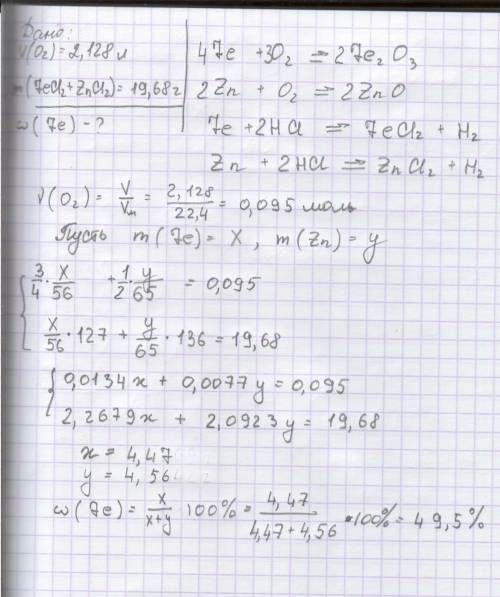 Дано:
V(O₂)=2,128 л
m(FeCl₂+ZnCl₂)=19,68 г
ω(Fe)-?
4Fe +3O₂ = 2Fe₂O₃
2Zn + O₂ = 2ZnO
Fe +2HCl = FeCl₂ + H₂
Zn + 2HCl = ZnCl₂ + H₂
ν(O₂) = V/Vм = 2,128/22,4 = 0,095 моль
Пусть m(Fe)= x , m(Zn)= y
3/4 · x/56 + 1/2 · y/65 = 0,095
x/56 · 127 + y/65 · 136 = 19,68
0,0134x + 0,0077y = 0,095
2,2679x + 2,0923y = 19,68
x = 4,47
y = 4,56
ω(Fe) = x/x+y 100% = 4,47/4,47+4,56 ·100% = 49,5%